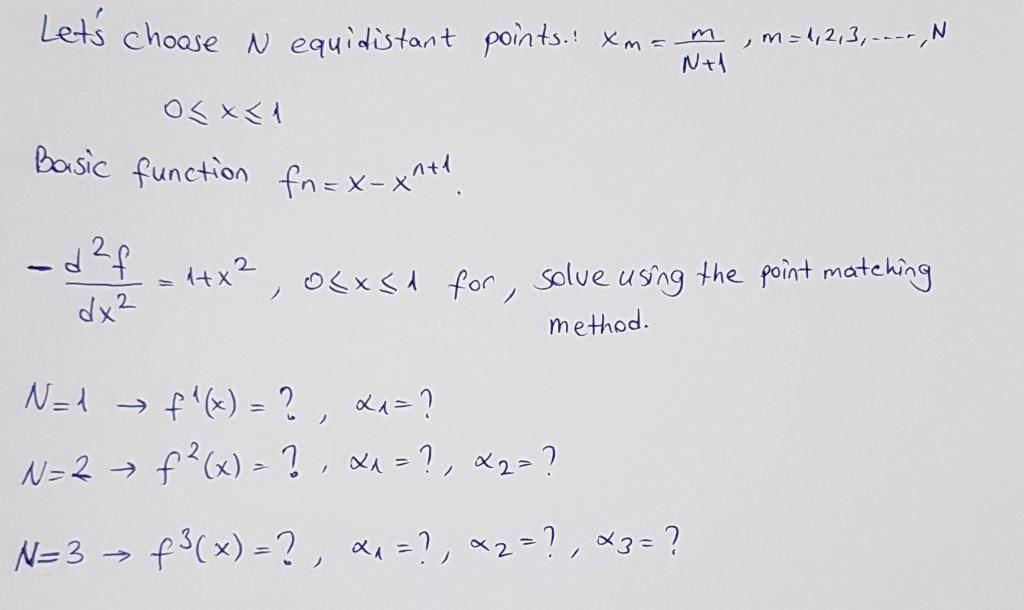 Let's choose N equidistant points.: xm = m/(N+1) , m=1,2,3,----,N
0≤x≤1
Basic function fn=x-x^(n+1).
-d²f/dx² = 1+x² , 0≤x≤1 for, solve using the point matching
method.
N=1 → f¹(x) = ? , α₁=?
N=2 → f²(x) = ? , α₁ = ?, α₂=?
N=3 → f³(x) = ? , α₁ = ?, α₂ = ?, α₃ = ?